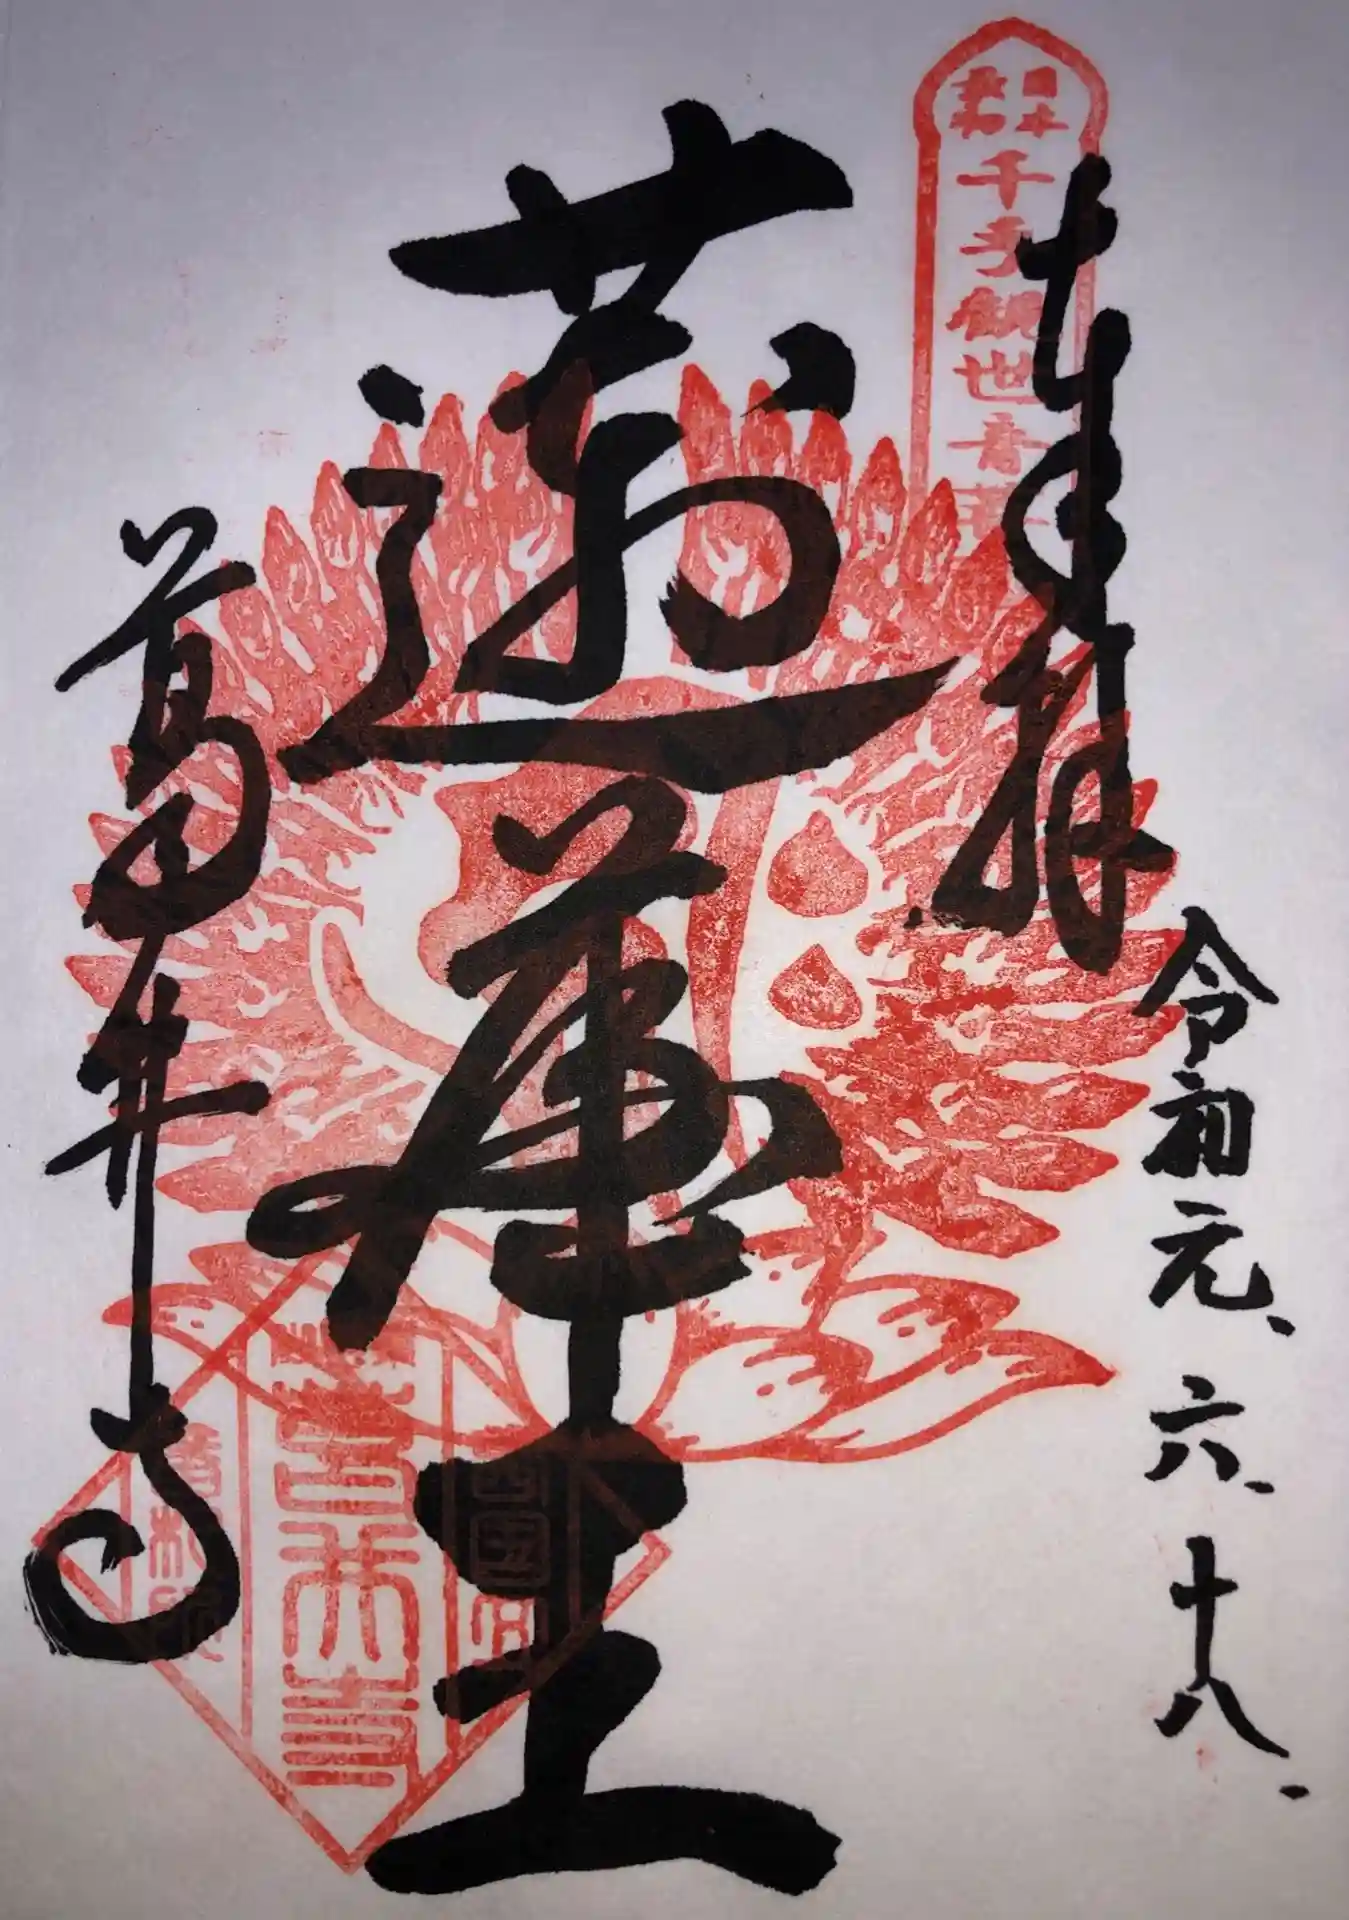 奉拝
令和元、六、十八、
日本最初
千手観世音菩
蓮華王
葛井寺
西國五
葛井寺